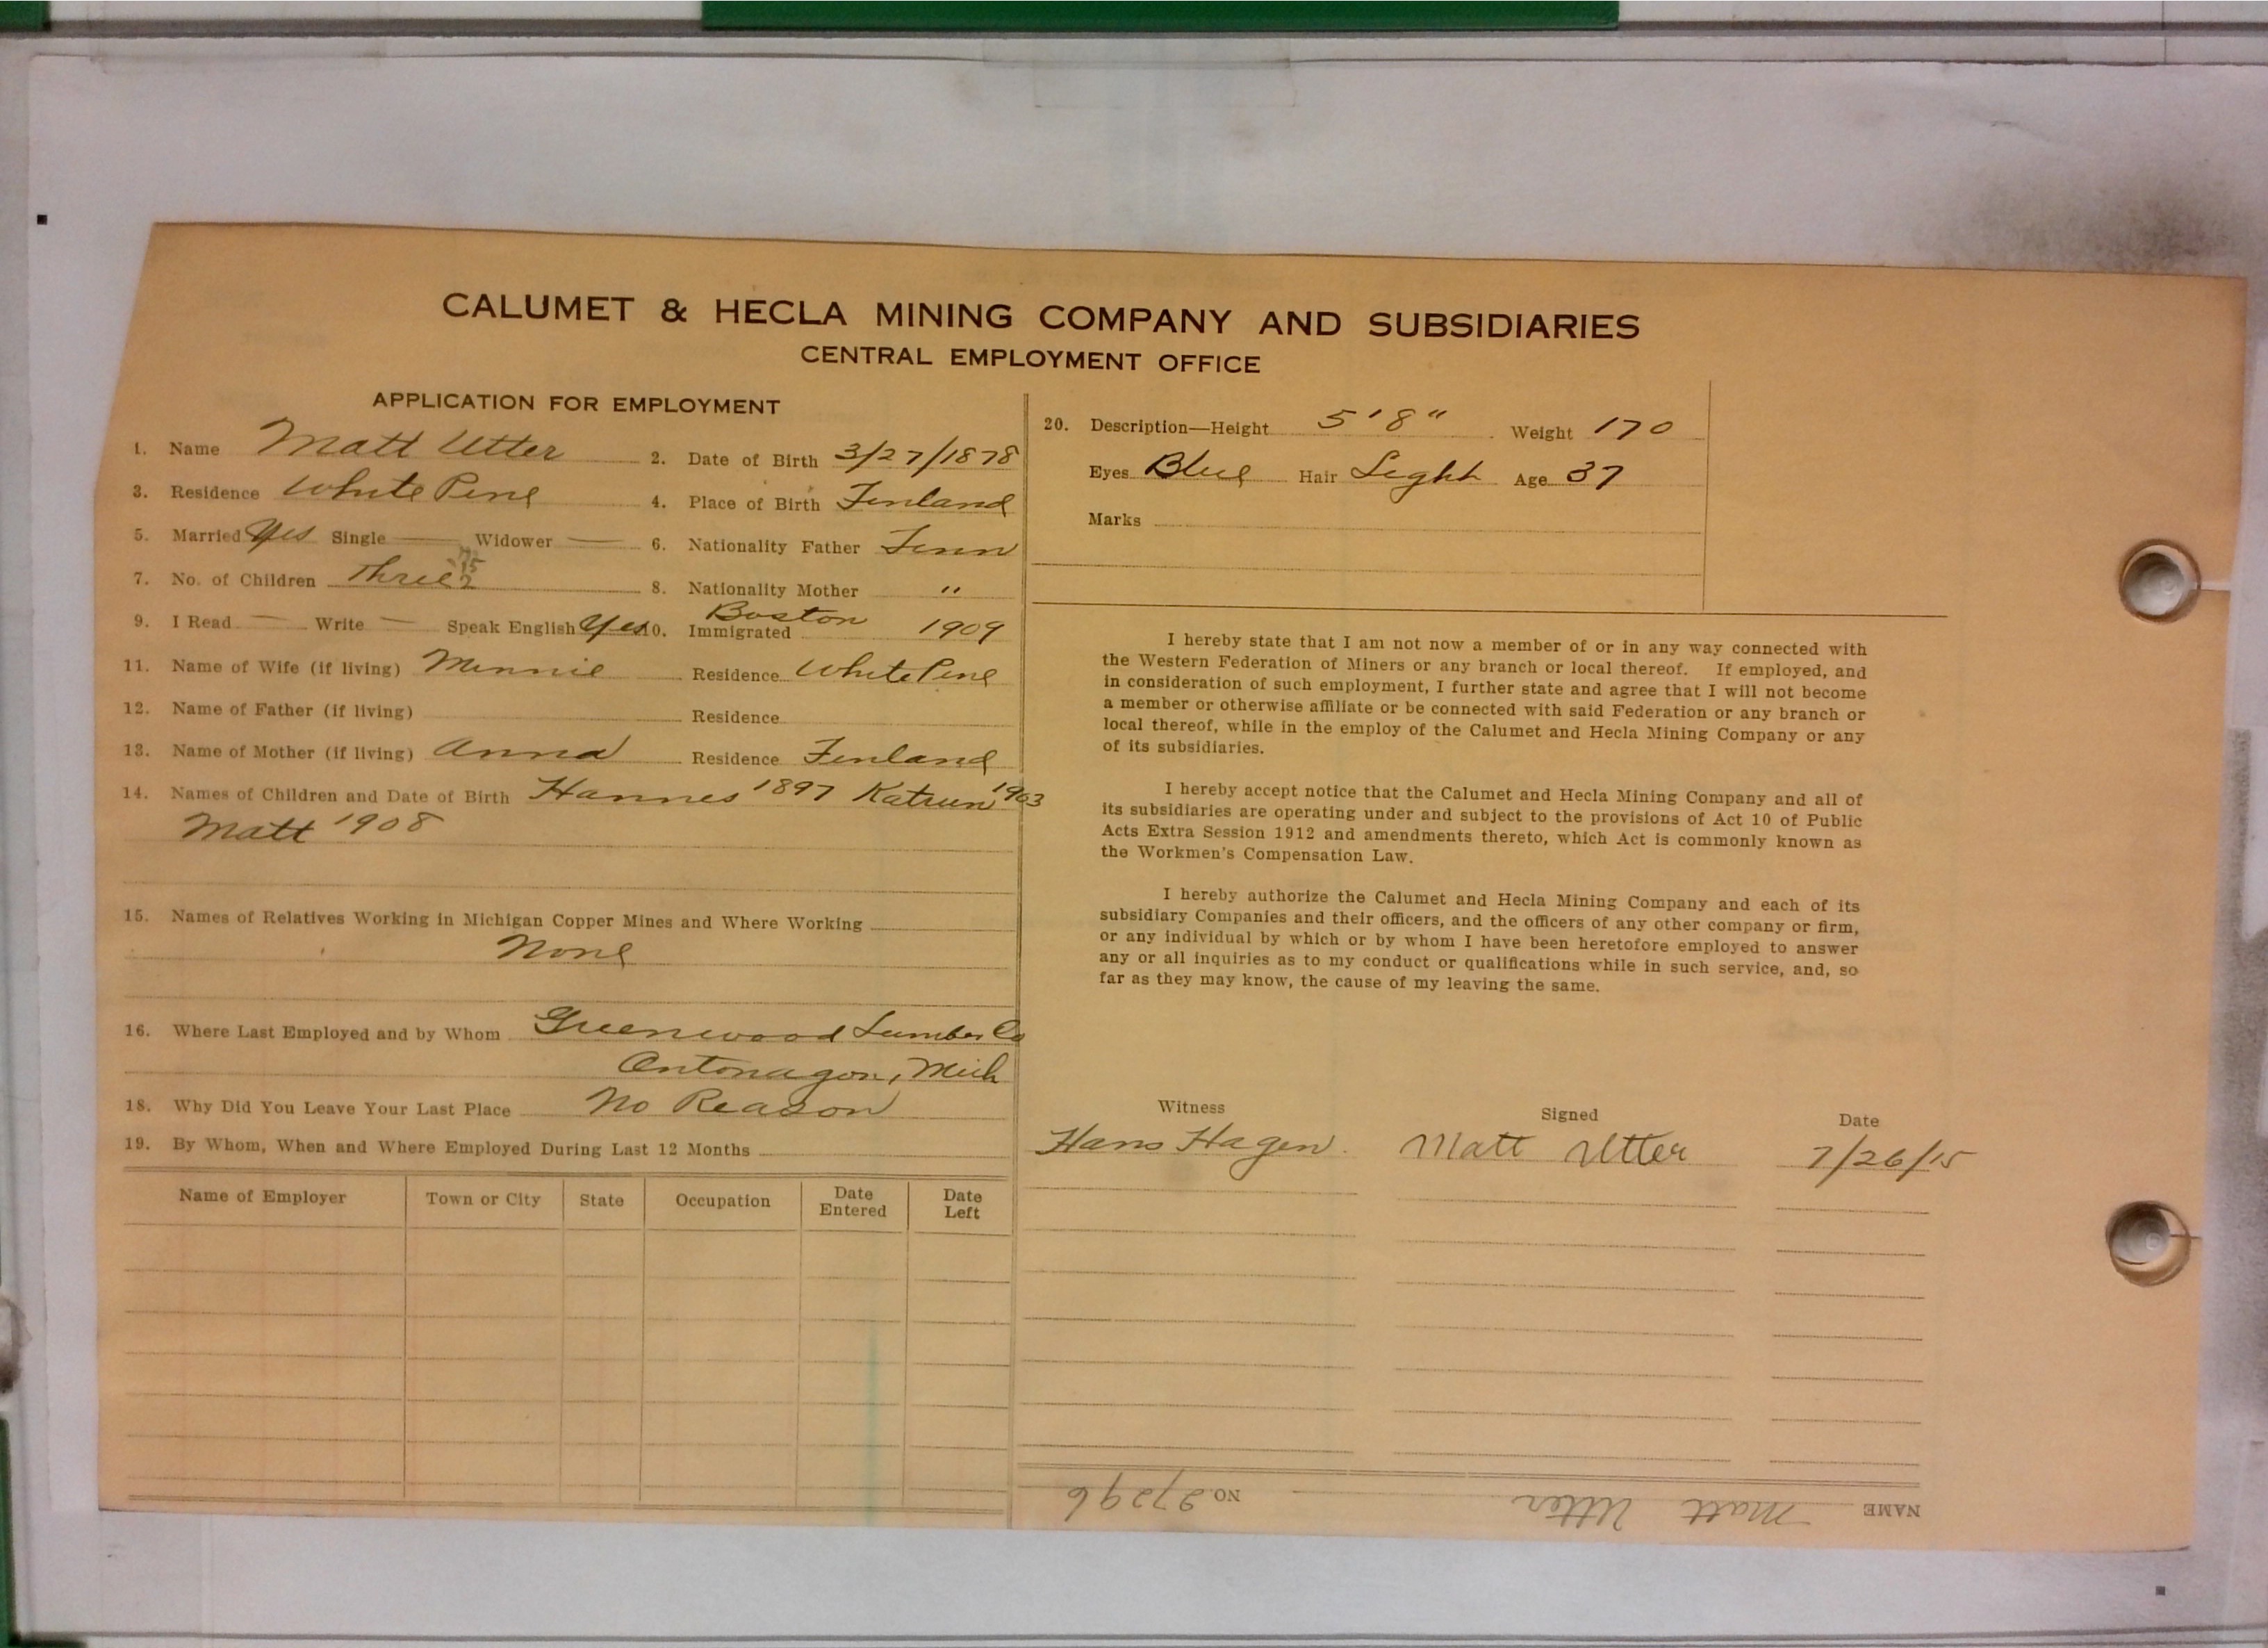 CALUMET & HECLA MINING COMPANY AND SUBSIDIARIES
CENTRAL EMPLOYMENT OFFICE
APPLICATION FOR EMPLOYMENT
1. Name Matt Utter 2. Date of Birth 3/27/1878
3. Residence White Pine 4. Place of Birth Finland
5. Married Yes Single — Widower — 6. Nationality Father Finn
7. No. of Children Three 8. Nationality Mother "
9. I Read — Write — Speak English Yes 10. Immigrated Boston 1909
11. Name of Wife (if living) Minnie Residence White Pine
12. Name of Father (if living) Residence
13. Name of Mother (if living) Anna Residence Finland
14. Names of Children and Date of Birth Hannes 1897 Katrun 1903
Matt 1908
15. Names of Relatives Working in Michigan Copper Mines and Where Working
None
16. Where Last Employed and by Whom Greenwood Lumber Co
Ontonagon, Mich
18. Why Did You Leave Your Last Place No Reason
19. By Whom, When and Where Employed During Last 12 Months
Name of Employer Town or City State Occupation Date Entered Date Left
20. Description—Height 5'8" Weight 170
Eyes Blue Hair Light Age 37
Marks
I hereby state that I am not now a member of or in any way connected with
the Western Federation of Miners or any branch or local thereof. If employed, and
in consideration of such employment, I further state and agree that I will not become
a member or otherwise affiliate or be connected with said Federation or any branch or
local thereof, while in the employ of the Calumet and Hecla Mining Company or any
of its subsidiaries.
I hereby accept notice that the Calumet and Hecla Mining Company and all of
its subsidiaries are operating under and subject to the provisions of Act 10 of Public
Acts Extra Session 1912 and amendments thereto, which Act is commonly known as
the Workmen's Compensation Law.
I hereby authorize the Calumet and Hecla Mining Company and each of its
subsidiary Companies and their officers, and the officers of any other company or firm,
or any individual by which or by whom I have been heretofore employed to answer
any or all inquiries as to my conduct or qualifications while in such service, and, so
far as they may know, the cause of my leaving the same.
Witness Signed Date
Hans Hagen Matt Utter 7/26/15
NAME Matt Utter NO. 27296